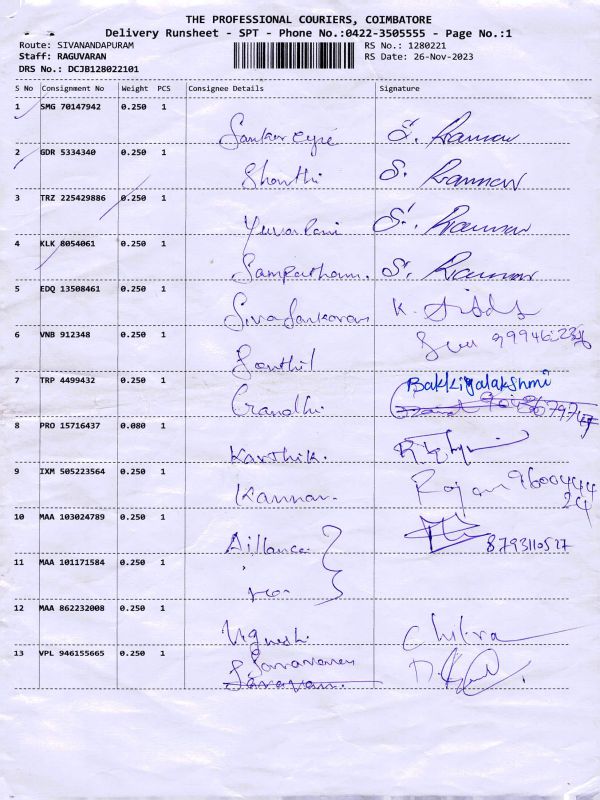 THE PROFESSIONAL COURIERS, COIMBATORE
Delivery Runsheet - SPT - Phone No.:0422-3505555 - Page No.:1
Route: SIVANANDAPURAM RS No.: 1280221
Staff: RAGUVARAN RS Date: 26-Nov-2023
DRS No.: DCJB128022101
S No Consignment No Weight PCS Consignee Details Signature
1 SMG 70147942 0.250 1
S. Kannan
2 GDR 5334340 0.250 1
Shanthi S. Kannan
3 TRZ 225429886 0.250 1
Yuvarani S. Kannan
4 KLK 8054061 0.250 1
Sampatham. S. Kannan
5 EDQ 13508461 0.250 1
Sivasankaran K.
6 VNB 912348 0.250 1
Senthil
7 TRP 4499432 0.250 1
Bakkiyalakshmi
Grandhi
8 PRO 15716437 0.080 1
Karthik.
9 IXM 505223564 0.250 1
Kannan. Rajan 9600444
24
10 MAA 103024789 0.250 1
8793110527
11 MAA 101171584 0.250 1
12 MAA 862232008 0.250 1
Vignesh. Chitra
13 VPL 946155665 0.250 1
Saravanan